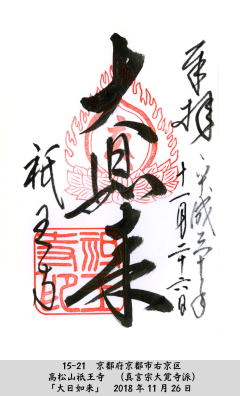 奉拝
平成三十年
十一月二十六日
大日如来
祇王寺
祇王寺印
15-21 京都府京都市右京区
高松山祇王寺 (真言宗大覚寺派)
「大日如来」 2018年11月26日